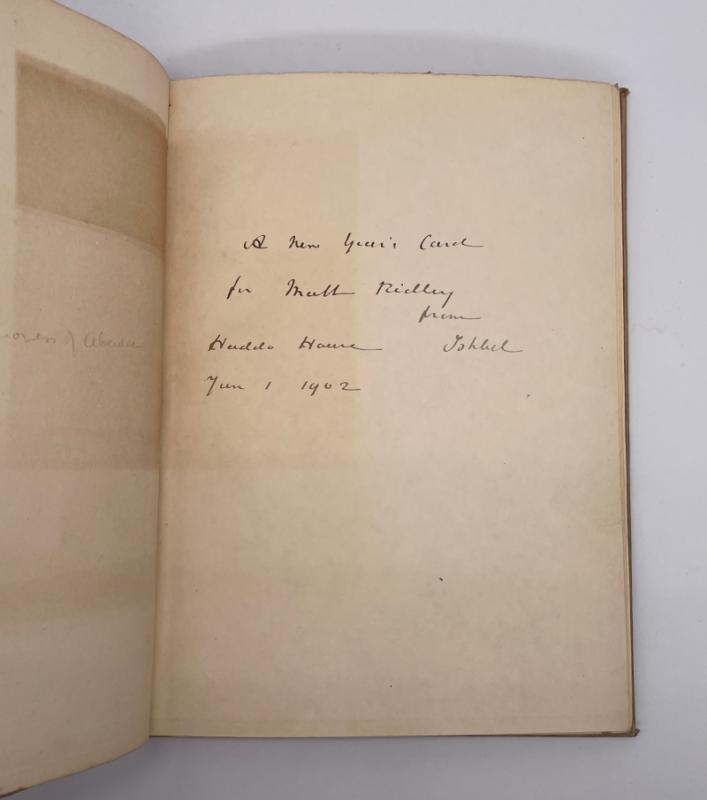 of Aberdee
A New Year's Card
for Matt Ridley
from
Haddo House Ishbel
Jan 1 1902